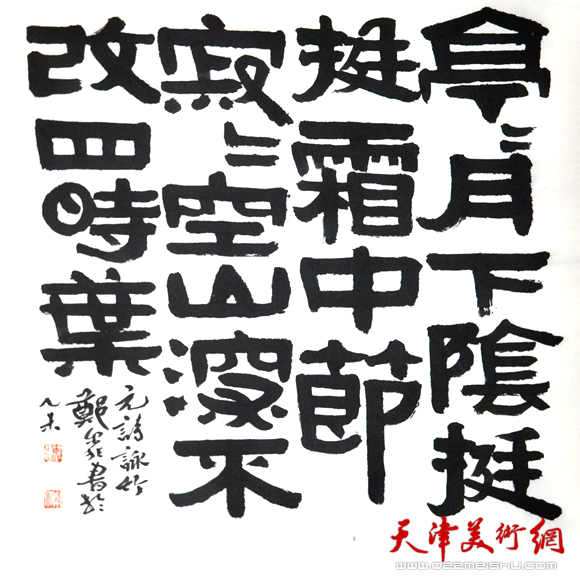 亭〻月下陰挺
挺霜中節
寂〻空山深不
改四時葉
元詩詠竹
鄭書於
乙未
天津美術網
www.022meishu.com